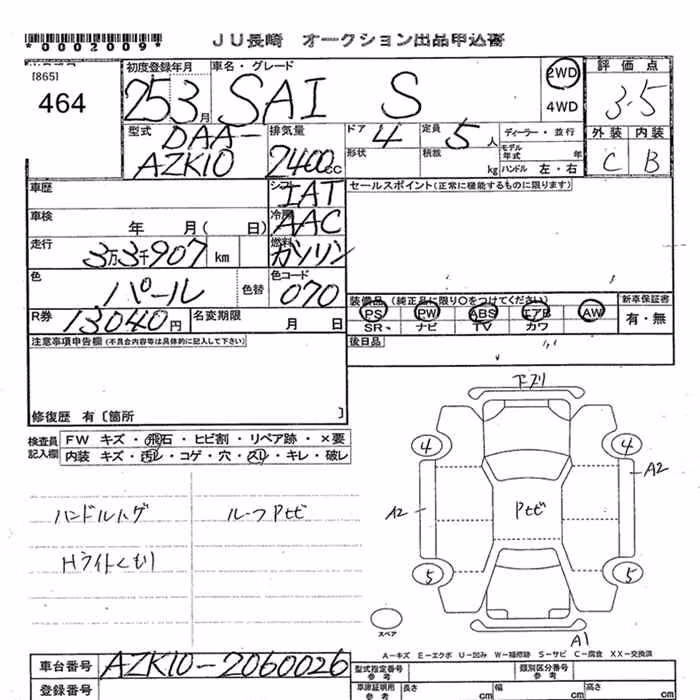 *0002009*
JU長崎 オークション出品申込書
[865]
464
初度登録年月
25 3月
車名・グレード
SAI S
2WD
4WD
評価点
3.5
外装 内装
C B
型式
DAA-
AZK10
排気量
2400cc
ドア 4
定員 5人
形状
積載 kg
ディーラー・並行
モデル年式 年
ハンドル 左・右
車歴
シフト IAT
セールスポイント(正常に機能するものに限ります)
車検 年 月( 日)
冷房 AAC
走行 3万3千907 km
燃料 ガソリン
色 パール
色替
色コード 070
装備品(純正品に限り○をつけてください)
新車保証書
PS PW ABS エアB AW
SR ナビ TV カワ
有・無
R券 13040円
名変期限 月 日
後日品
注意事項申告欄(不具合内容等は具体的に記入して下さい)
修復歴 有〔箇所 〕
検査員記入欄
FW キズ・飛石・ヒビ割・リペア跡・×要
内装 キズ・汚レ・コゲ・穴・スレ・キレ・破レ
ハンドルハゲ
ルーフPセビ
Hライトくもり
下ズリ
4 4
A2
A2
Pセビ
5 5
スペア
A1
A-キズ E-エクボ U-凹み W-補修跡 S-サビ C-腐食 XX-交換済
車台番号 AZK10-2060026
登録番号
型式指定番号参考
類別区分番号参考
車庫証明用参考
長さ cm 幅 cm 高さ cm